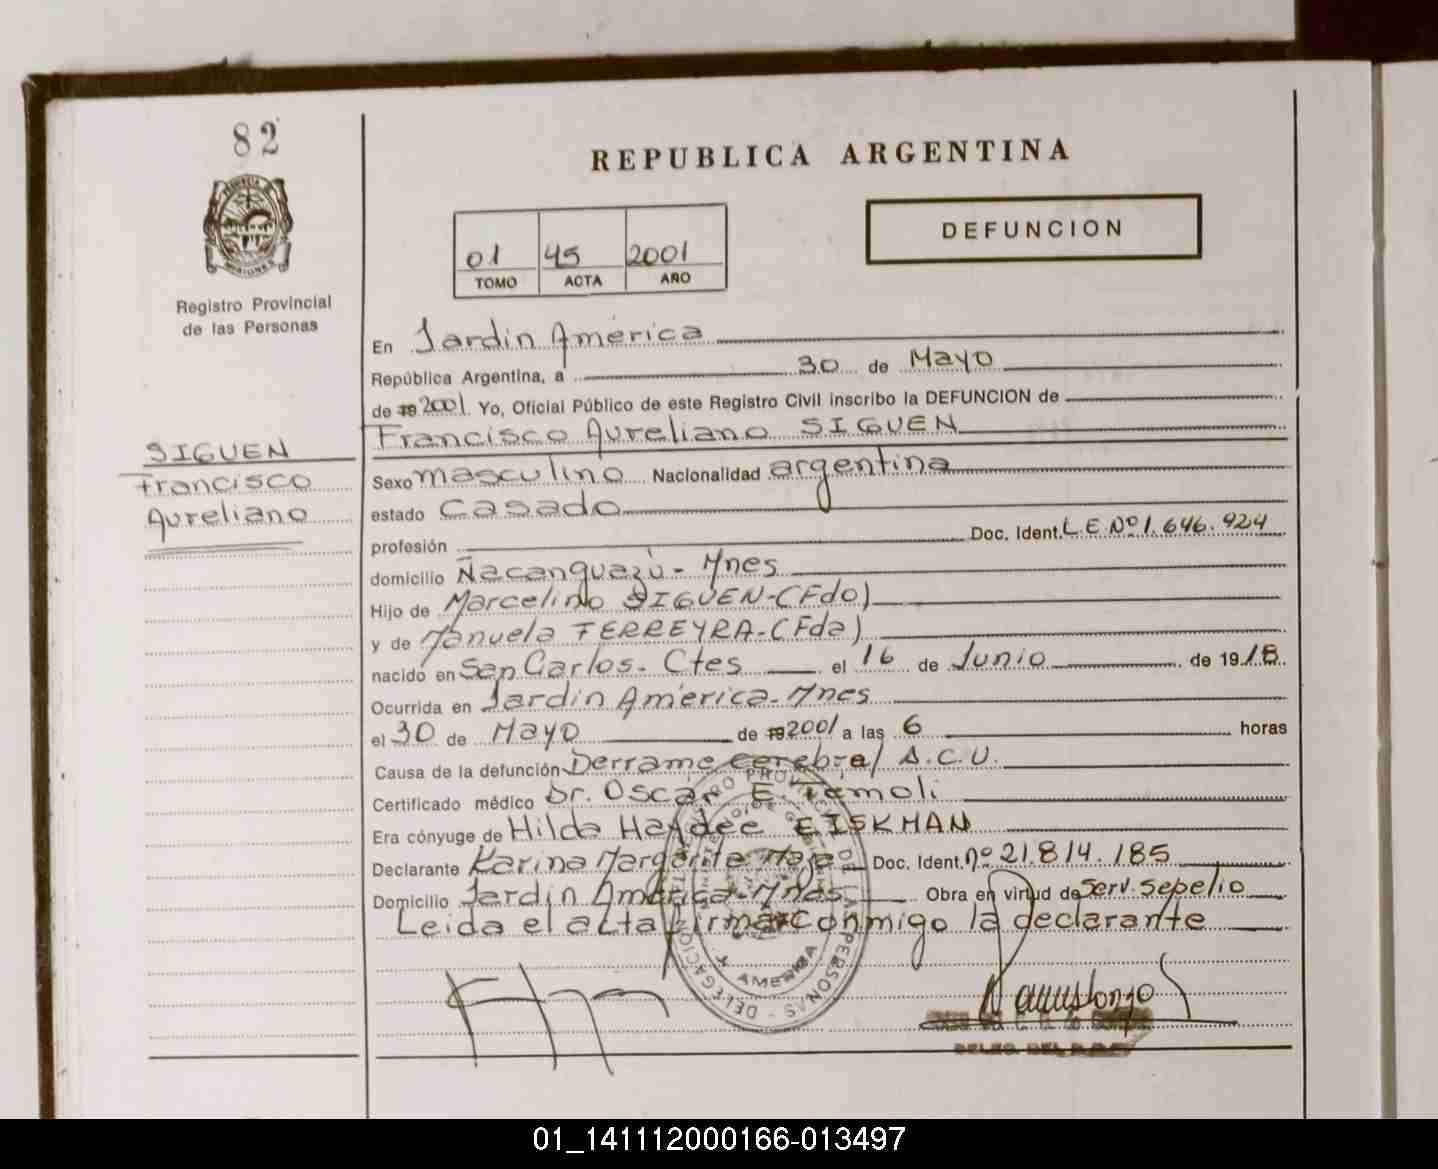 82
REPUBLICA ARGENTINA
PROVINCIA DE
MISIONES
Registro Provincial
de las Personas
01 45 2001
TOMO ACTA AÑO
DEFUNCION
En Jardin América
República Argentina, a 30 de Mayo
de 19 2001. Yo, Oficial Público de este Registro Civil inscribo la DEFUNCION de
Francisco Aureliano SIGUEN
SIGUEN
Francisco
Aureliano
Sexo masculino Nacionalidad argentina
estado casado
profesión Doc. Ident. L.E.Nº 1.646.924
domicilio Ñacanguazú - Mnes
Hijo de Marcelino SIGUEN-(Fdo)
y de Manuela FERREYRA-(Fda)
nacido en San Carlos - Ctes el 16 de Junio de 1918.
Ocurrida en Jardin América - Mnes
el 30 de Mayo de 19 2001 a las 6 horas
Causa de la defunción Derrame cerebral A.C.V.
Certificado médico Dr. Oscar E.
Era cónyuge de Hilda Haydee EISKHAN
Declarante Karina Margarita Doc. Ident. nº 21.814.185
Domicilio Jardin América - Mnes Obra en virtud de Serv. Sepelio
Leida el acta firma conmigo la declarante
REGISTRO PROVINCIAL DE LAS PERSONAS - DELEGACION
AMERICA
01_141112000166-013497